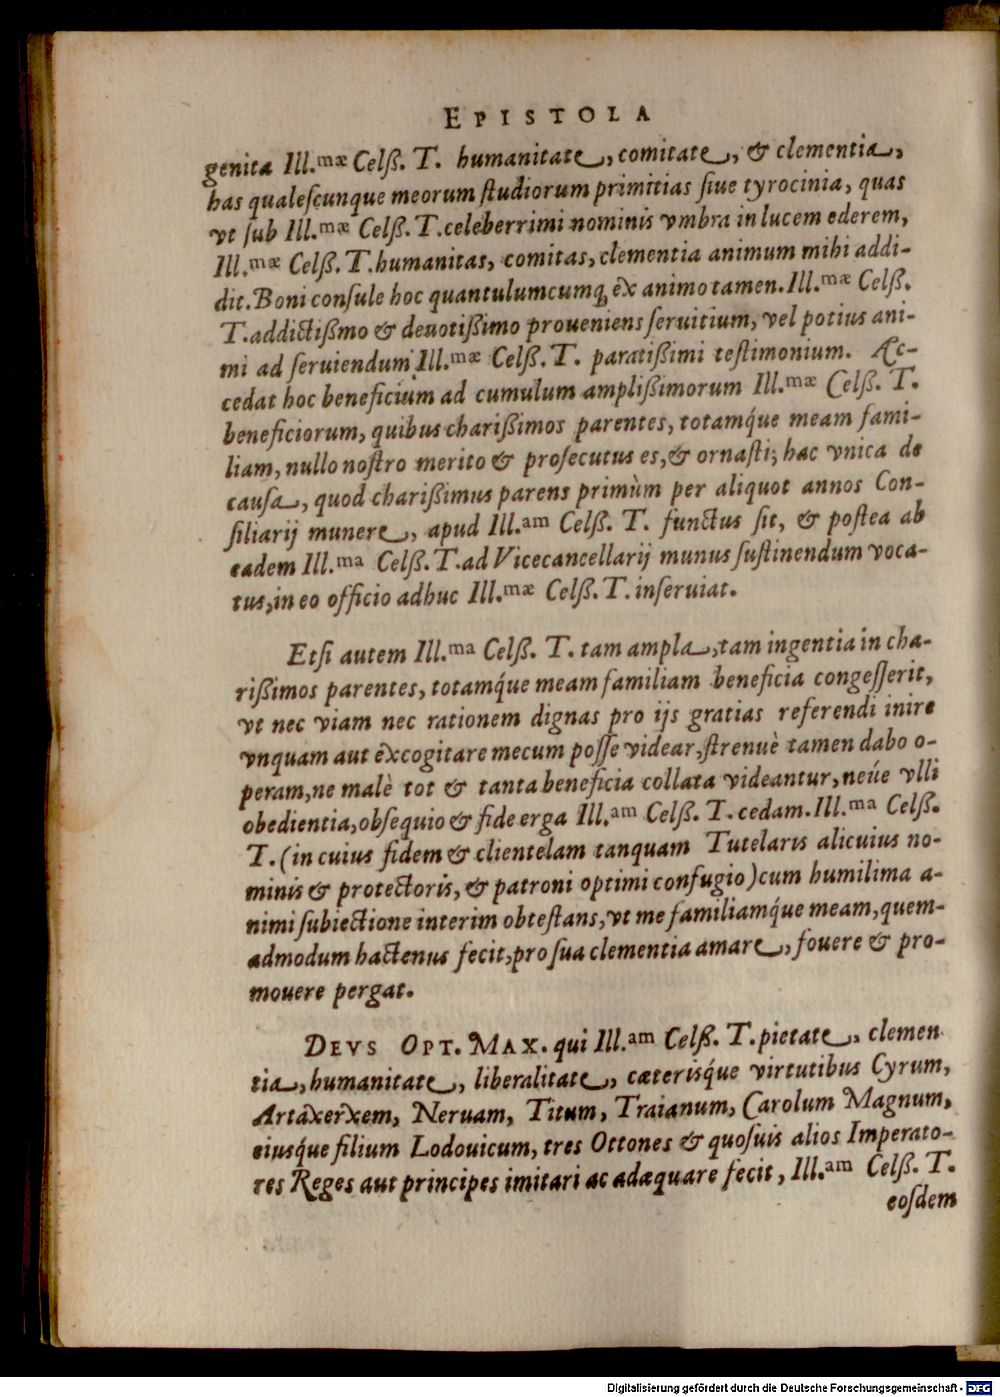 EPISTOLA
genita Ill.mæ Celſß. T. humanitate, comitate, & clementia,
has qualeſcunque meorum ſtudiorum primitias ſiue tyrocinia, quas
vt ſub Ill.mæ Celſß. T. celeberrimi nominis vmbra in lucem ederem,
Ill.mæ Celſß. T. humanitas, comitas, clementia animum mihi addi-
dit. Boni conſule hoc quantulumcumq, ex animo tamen. Ill.mæ Celſß.
T. addictißmo & deuotißimo proueniens ſeruitium, vel potius ani-
mi ad ſeruiendum Ill.mæ Celſß. T. paratißimi teſtimonium. Ac-
cedat hoc beneficium ad cumulum amplißimorum Ill.mæ Celſß. T.
beneficiorum, quibus charißimos parentes, totamq́ue meam fami-
liam, nullo noſtro merito & proſecutus es, & ornaſti; hac vnica de
cauſa, quod charißimus parens primùm per aliquot annos Con-
ſiliarij munere, apud Ill.am Celſß. T. functus ſit, & poſtea ab
eadem Ill.ma Celſß. T. ad Vicecancellarij munus ſuſtinendum voca-
tus, in eo officio adhuc Ill.mæ Celſß. T. inſeruiat.
Etſi autem Ill.ma Celſß. T. tam ampla, tam ingentia in cha-
rißimos parentes, totamq́ue meam familiam beneficia congeſſerit,
vt nec viam nec rationem dignas pro ijs gratias referendi inire
vnquam aut excogitare mecum poſſe videar, ſtrenuè tamen dabo o-
peram, ne malè tot & tanta beneficia collata videantur, neúe vlli
obedientia, obſequio & fide erga Ill.am Celſß. T. cedam. Ill.ma Celſß.
T. (in cuius fidem & clientelam tanquam Tutelaris alicuius no-
minis & protectoris, & patroni optimi confugio) cum humilima a-
nimi ſubiectione interim obteſtans, vt me familiamq́ue meam, quem-
admodum hactenus fecit, pro ſua clementia amare, fouere & pro-
mouere pergat.
DEVS OPT. MAX. qui Ill.am Celſß. T. pietate, clemen
tia, humanitate, liberalitate, cæterisq́ue virtutibus Cyrum,
Artaxerxem, Neruam, Titum, Traianum, Carolum Magnum,
eiusq́ue filium Lodouicum, tres Ottones & quoſuis alios Imperato-
res Reges aut principes imitari ac adæquare fecit, Ill.am Celſß. T.
eoſdem
Digitalisierung gefördert durch die Deutsche Forschungsgemeinschaft - DFG